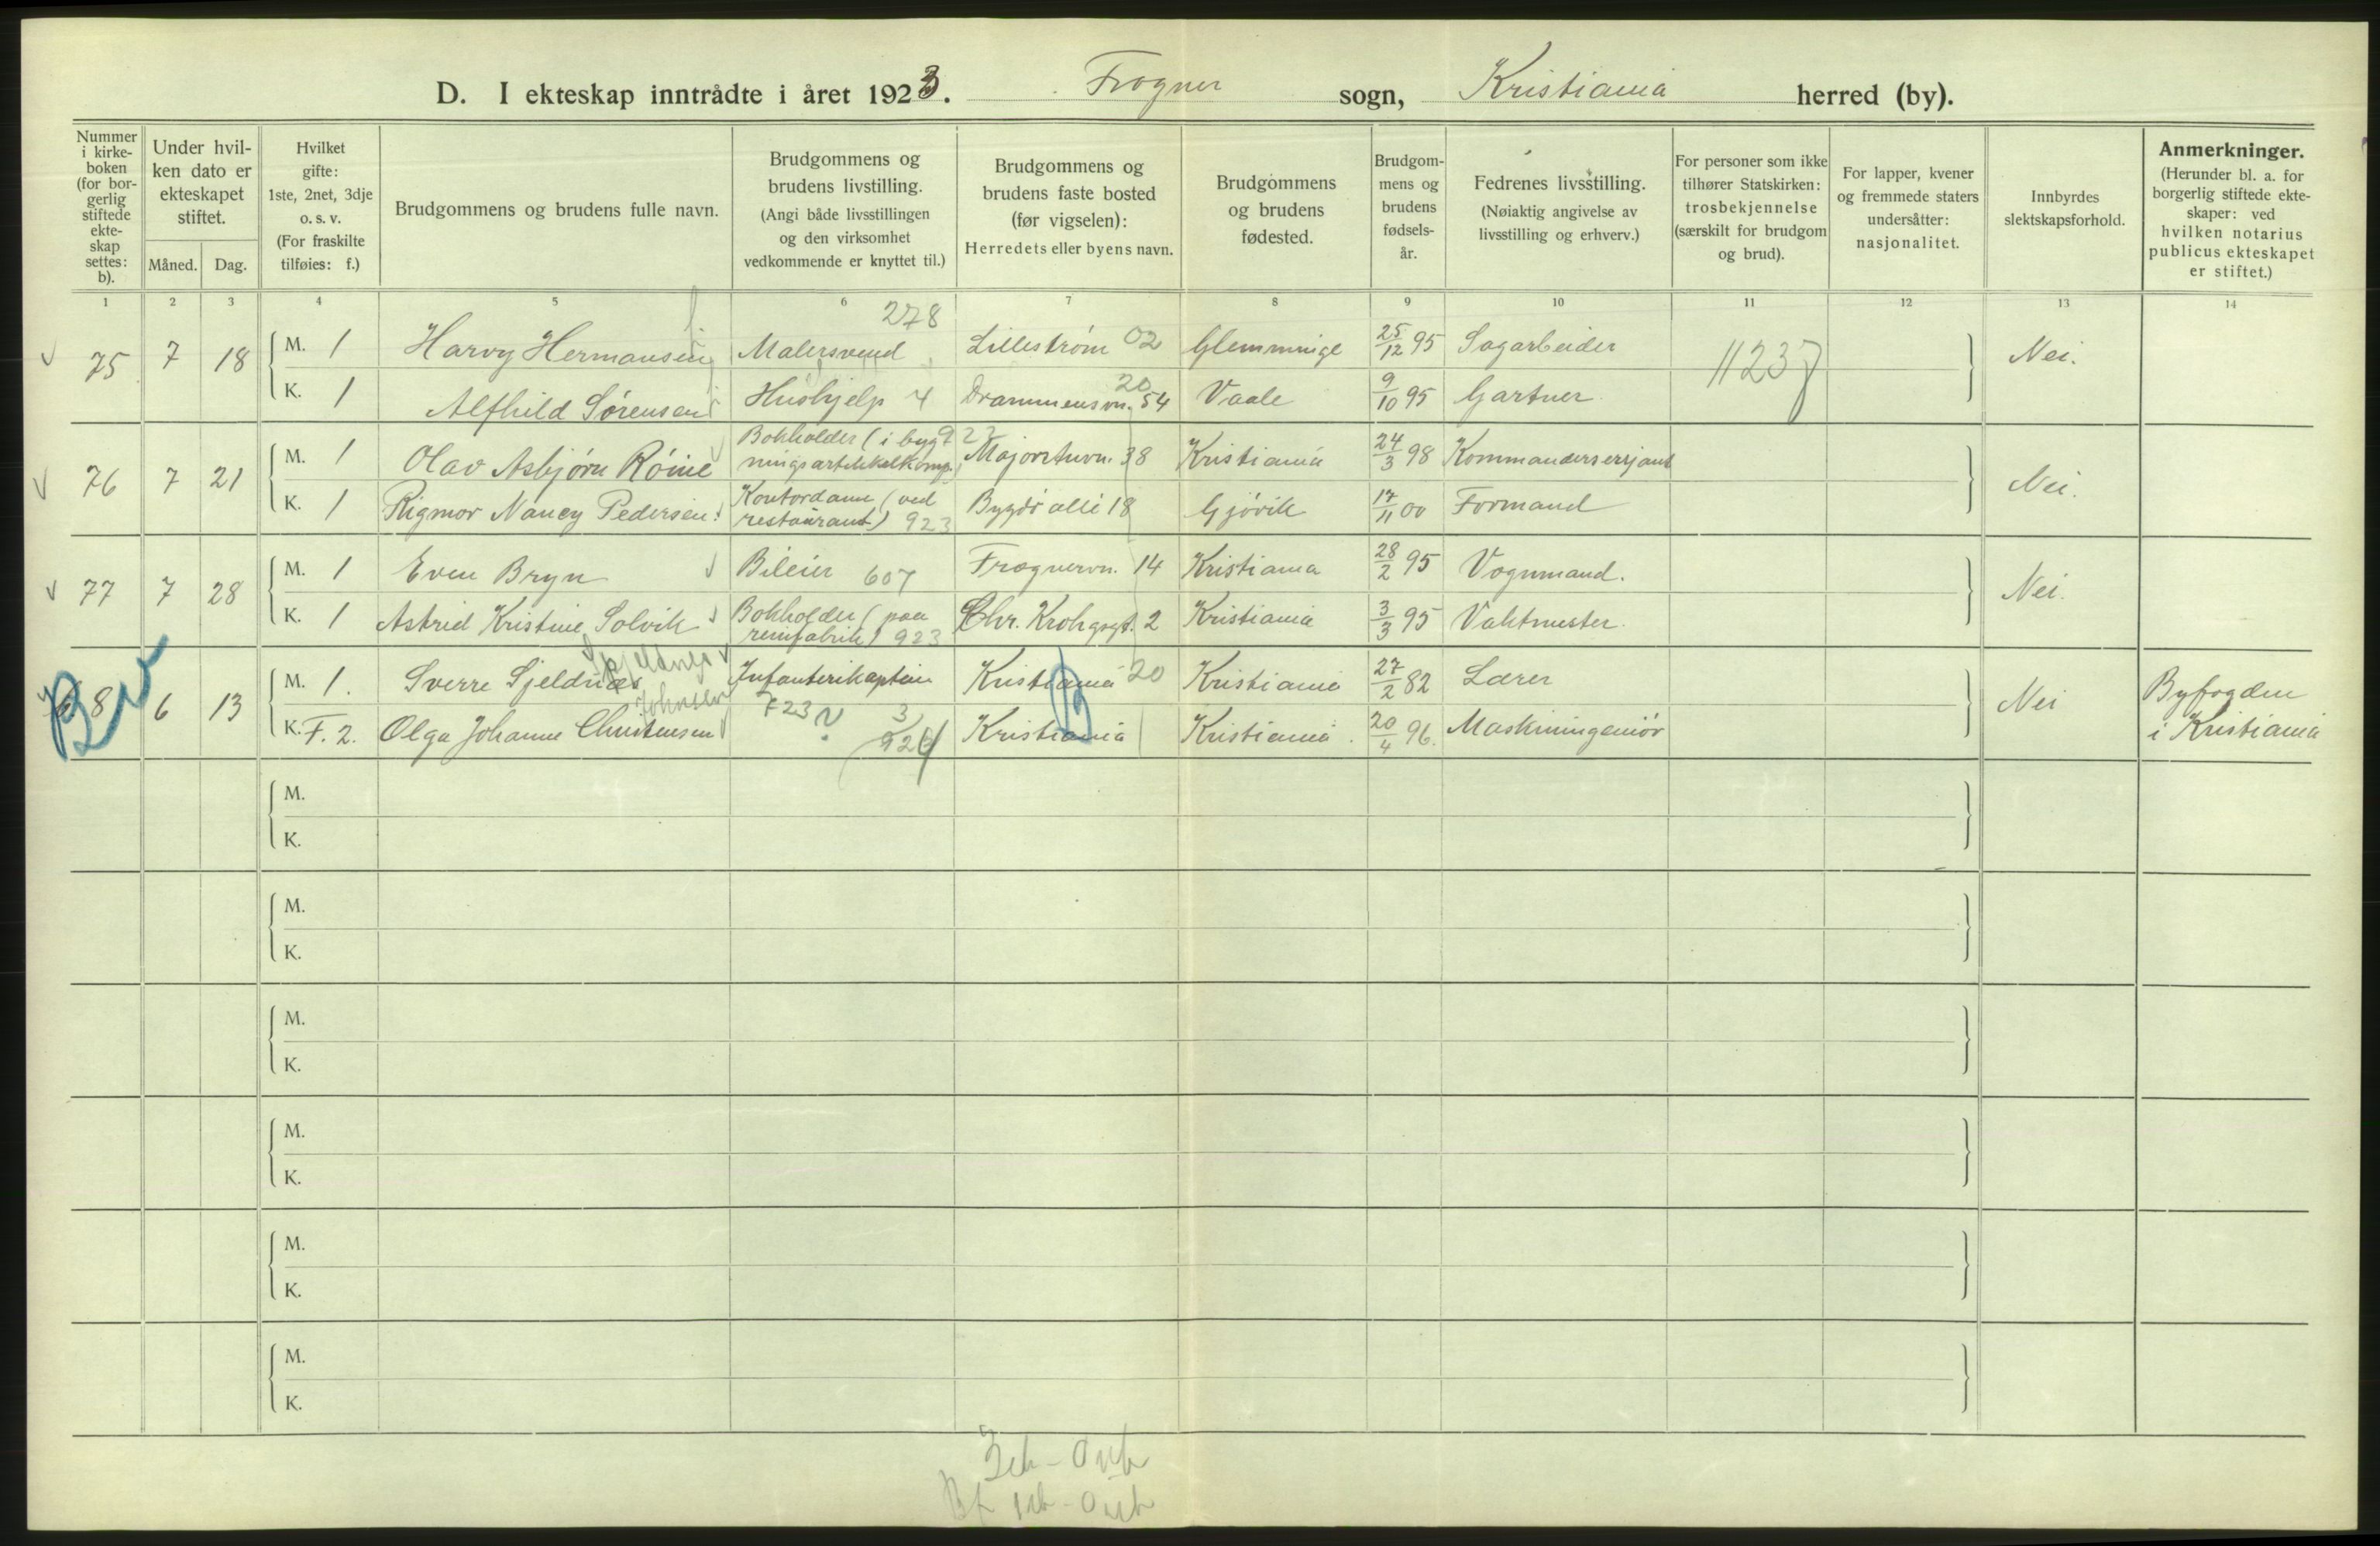 D. I ekteskap inntrådte i året 1923. Frogner sogn, Kristiania herred (by).
Nummer i kirke-boken (for bor-gerlig stiftede ekte-skap settes: b).
Under hvil-ken dato er ekteskapet stiftet.
Måned. Dag.
Hvilket gifte: 1ste, 2net, 3dje o. s. v. (For fraskilte tilføies: f.)
Brudgommens og brudens fulle navn.
Brudgommens og brudens livstilling. (Angi både livsstillingen og den virksomhet vedkommende er knyttet til.)
Brudgommens og brudens faste bosted (før vigselen): Herredets eller byens navn.
Brudgommens og brudens fødested.
Brudgom-mens og brudens fødsels-år.
Fedrenes livsstilling. (Nøiaktig angivelse av livsstilling og erhverv.)
For personer som ikke tilhører Statskirken: trosbekjennelse (særskilt for brudgom og brud).
For lapper, kvener og fremmede staters undersåtter: nasjonalitet.
Innbyrdes slektskapsforhold.
Anmerkninger. (Herunder bl. a. for borgerlig stiftede ekte-skaper: ved hvilken notarius publicus ekteskapet er stiftet.)
1 2 3 4 5 6 7 8 9 10 11 12 13 14
278
75 7 18 M. 1 Harvy Hermansen Malersvend Lillestrøm 02 Glemminge 25/12 95 Sagarbeider 11237 Nei.
K. 1 Alfhild Sørensen Hushjelp 4 Drammensvn. 54 20 Vaale 9/10 95 Gartner
76 7 21 M. 1 Olav Asbjörn Röine Bokholder (i bygningsartikkelkomp.) 22 Majorstuvn. 38 Kristiania 24/3 98 Kommandersersjant Nei.
K. 1 Rigmor Nancy Pedersen Kontordame (ved restaurant) 923 Bygdö allé 18 Gjövik 17/11 00 Formand
77 7 28 M. 1 Even Bryn Bileier 607 Frognervn. 14 Kristiania 28/2 95 Vognmand. Nei.
K. 1 Astrid Kristine Solvik Bokholder (paa remfabrik) 923 Chr. Krohgsgt. 2 Kristiania 3/3 95 Vaktmester.
Skjeldnes
8 6 13 M. 1. Sverre Sjeldnes Infanterikaptein Kristiania 20 Kristiania 27/2 82 Lærer Nei Byfogden
Johnsen
K. F. 2. Olga Johanne Christensen 723 ? 3/924 Kristiania Kristiania 20/4 96. Maskiningeniör i Kristiania
B
M.
K.
M.
K.
M.
K.
M.
K.
M.
K.
M.
K.